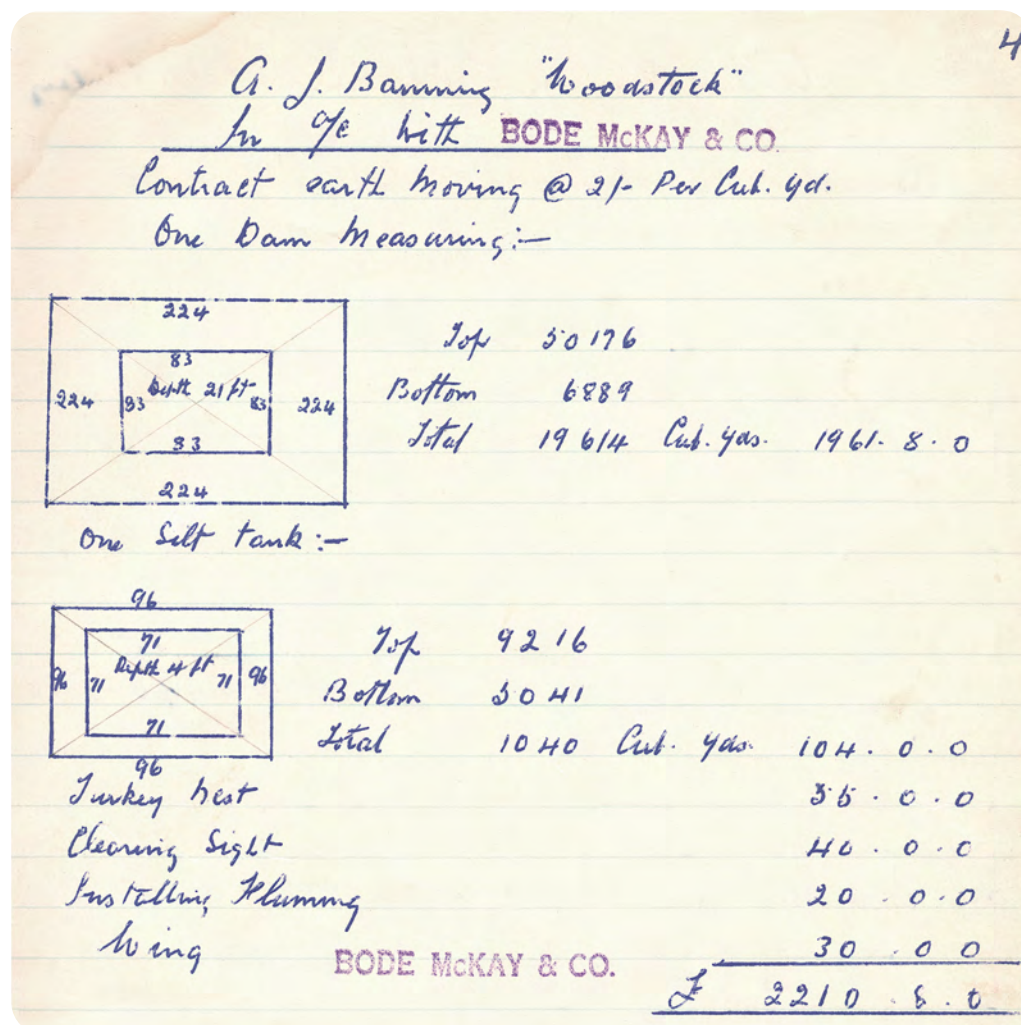 4
A. J. Banning "Woodstock"
In a/c With BODE McKAY & CO.
Contract earth Moving @ 2/- Per Cub. Yd.
One Dam Measuring:-
224
83
224 83 Depth 21 ft 83 224
83
224
Top 50176
Bottom 6889
Total 19614 Cub. Yds. 1961. 8. 0
One Silt Tank:-
96
71
96 71 Depth 4 ft 71 96
71
96
Top 9216
Bottom 5041
Total 1040 Cub. Yds. 104. 0. 0
Turkey Nest 55. 0. 0
Clearing Sight 40. 0. 0
Installing Fluming 20. 0. 0
Wing 30. 0 0
BODE McKAY & CO.
£ 2210. 8. 0